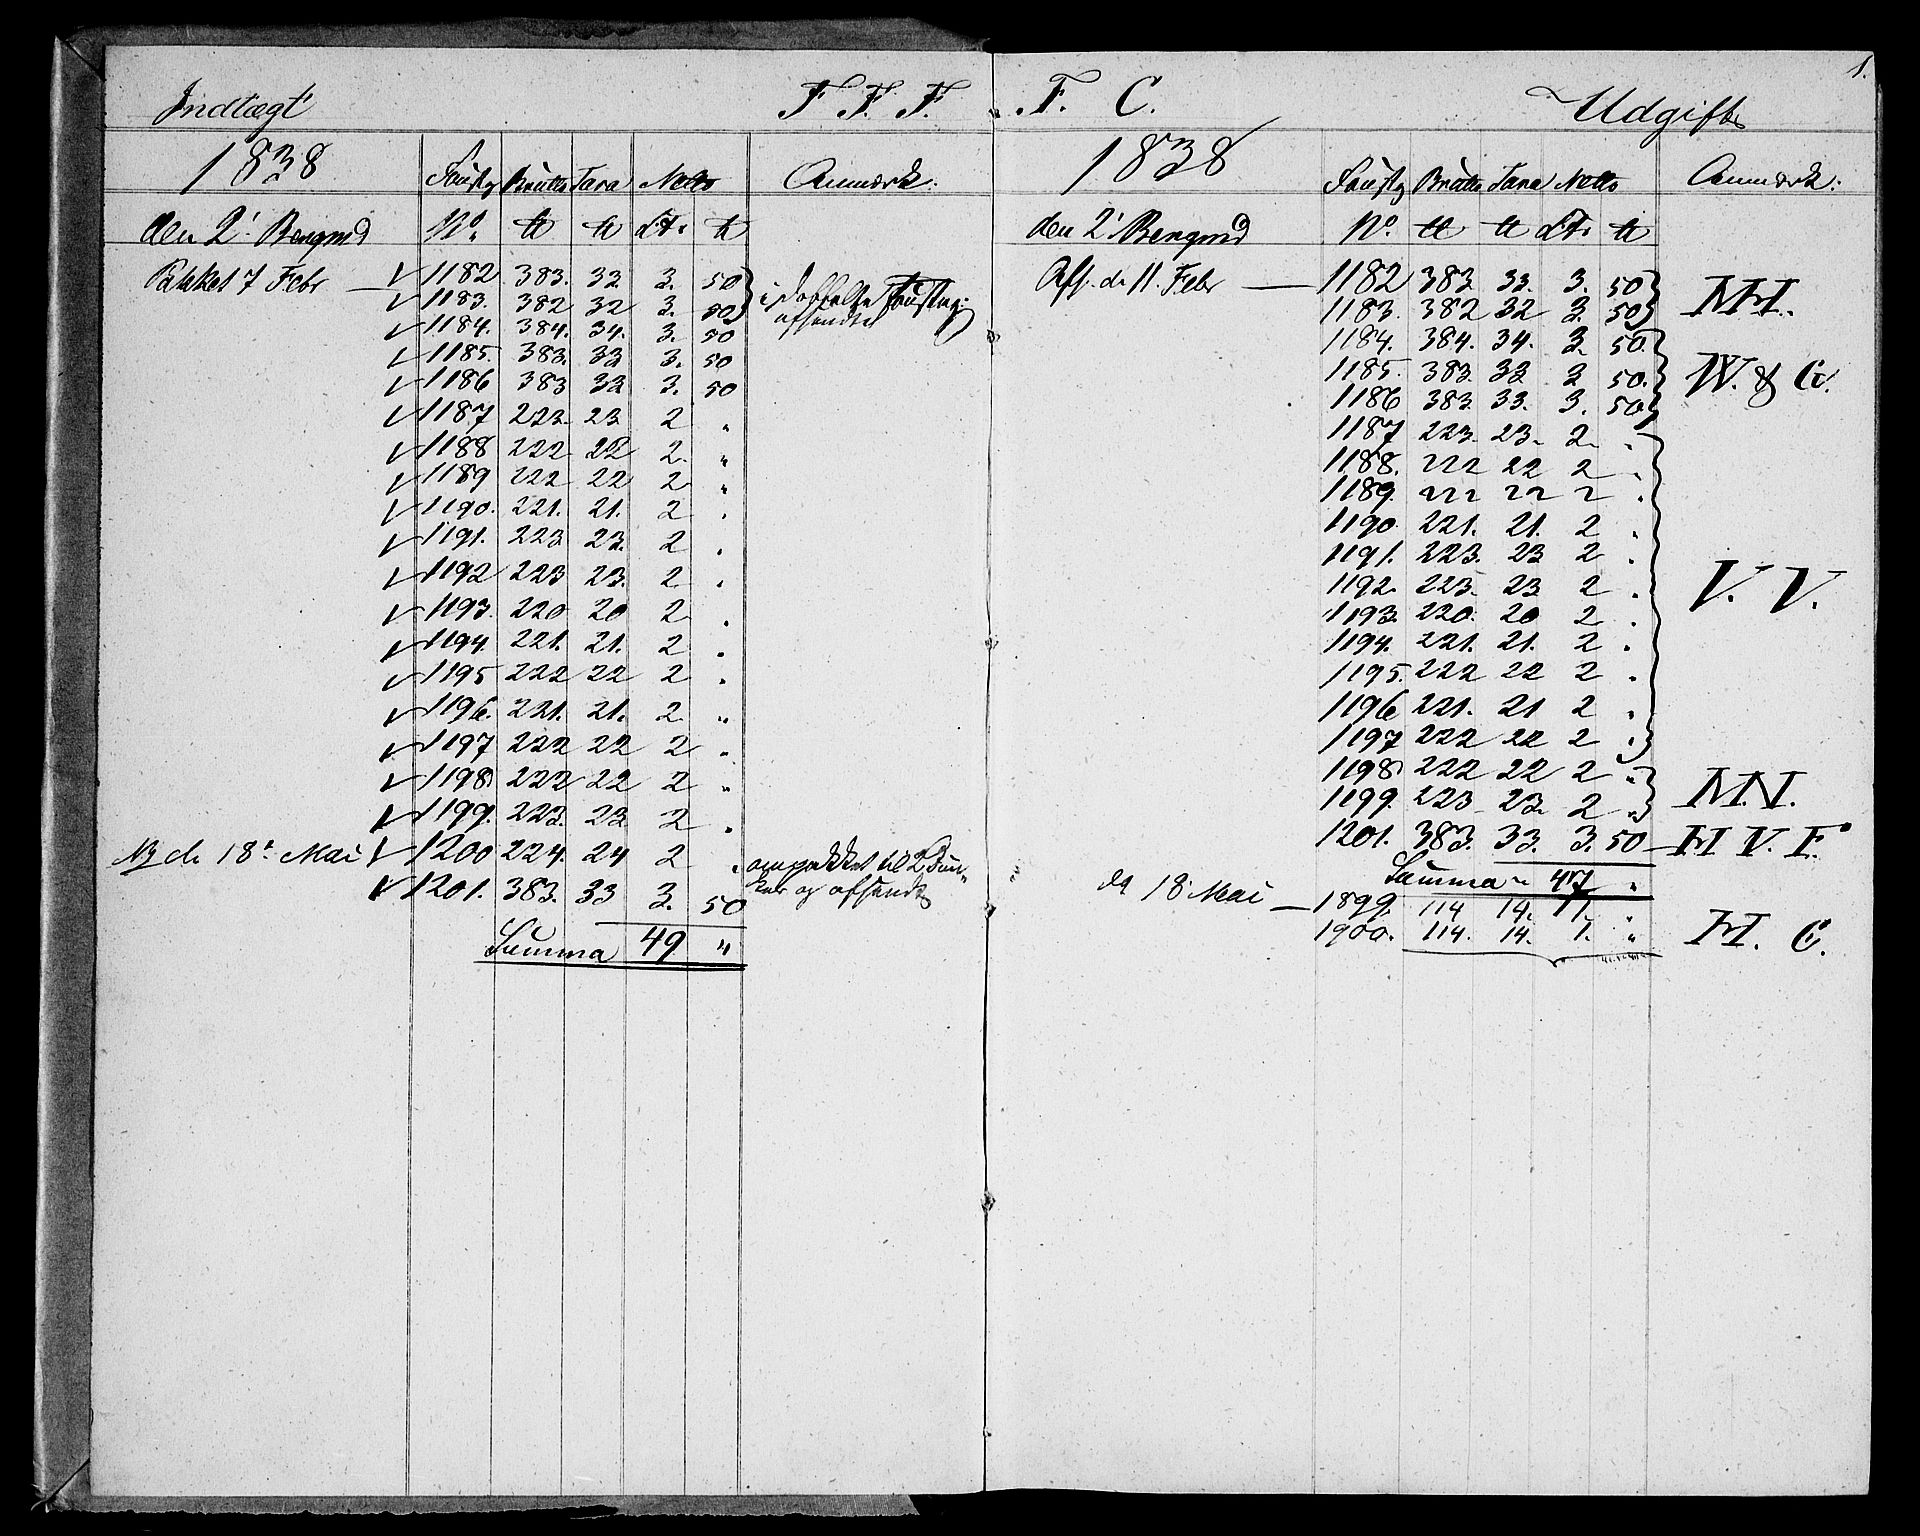 Indtægt F. F. F.
1838 Fustag Brutto Tara Netto Anmærk.
den 2' Bergmd No. ℔ ℔ Ct. ℔
Pakket 7 Febr — 1182 383. 33 3. 50
1183. 382 32 3. 50
i dobbelte Fustag:
afsendte
1184. 384. 34. 3. 50
1185. 383. 33 3. 50
1186 383 33 3. 50
1187 223. 23 2 "
1188 222 22 2. "
1189 222 22 2 "
1190. 221. 21. 2 "
1191. 223 23. 2 "
1192 223 23. 2 "
1193. 220 20 2 "
1194. 221. 21. 2 "
1195 222 22 2 "
1196. 221. 21. 2 "
1197 222 22 2 "
1198 222 22 2 "
1199. 223. 23 2 "
d. 18' Mai 1200 224. 24 2 " ompakket til 2 Fun-
1201. 383. 33 3. 50 og afsendt
Summa 49 "
1.
F. C. Udgift
1838 Fustag Brutto Tara Netto Anmærk:
den 2' Bergmd No. ℔ ℔ Ct. ℔
Afs. d. 11. Febr — 1182 383 33. 3. 50
1183. 382 32 3. 50 M.
1184. 384. 34. 3. 50.
1185. 383. 33 3 50. W. & G.
1186 383. 33. 3. 50
1187 223. 23. 2. "
1188. 222 22 2 "
1189. 222 22 2 "
1190. 221. 21. 2 "
1191. 223. 23 2 "
1192. 223. 23 2 " V. V.
1193. 220. 20 2 "
1194. 221. 21. 2 "
1195. 222 22 2 "
1196 221. 21 2 "
1197 222 22 2 "
1198 222 22 2 "
1199. 223 23. 2 " M.N.
1201. 383. 33. 3. 50 — H V. F.
Summa 47 "
d 18' Mai — 1899. 114 14. 1. "
1900. 114. 14. 1. " H. C.